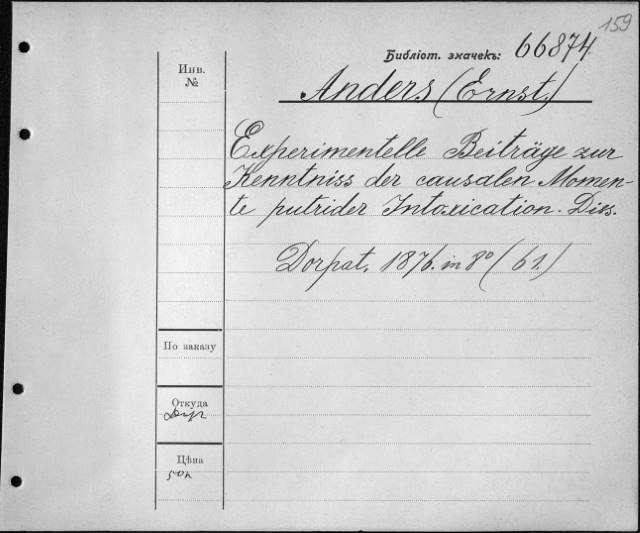 159
Библіот. значекъ: 66874.
Инв.
№
Anders (Ernst.)
Experimentelle Beiträge zur
Kenntniss der causalen Momen-
te putrider Intoxication. Diss.
Dorpat, 1876. in 8º (61.)
По заказу
Откуда
Цѣна
50к